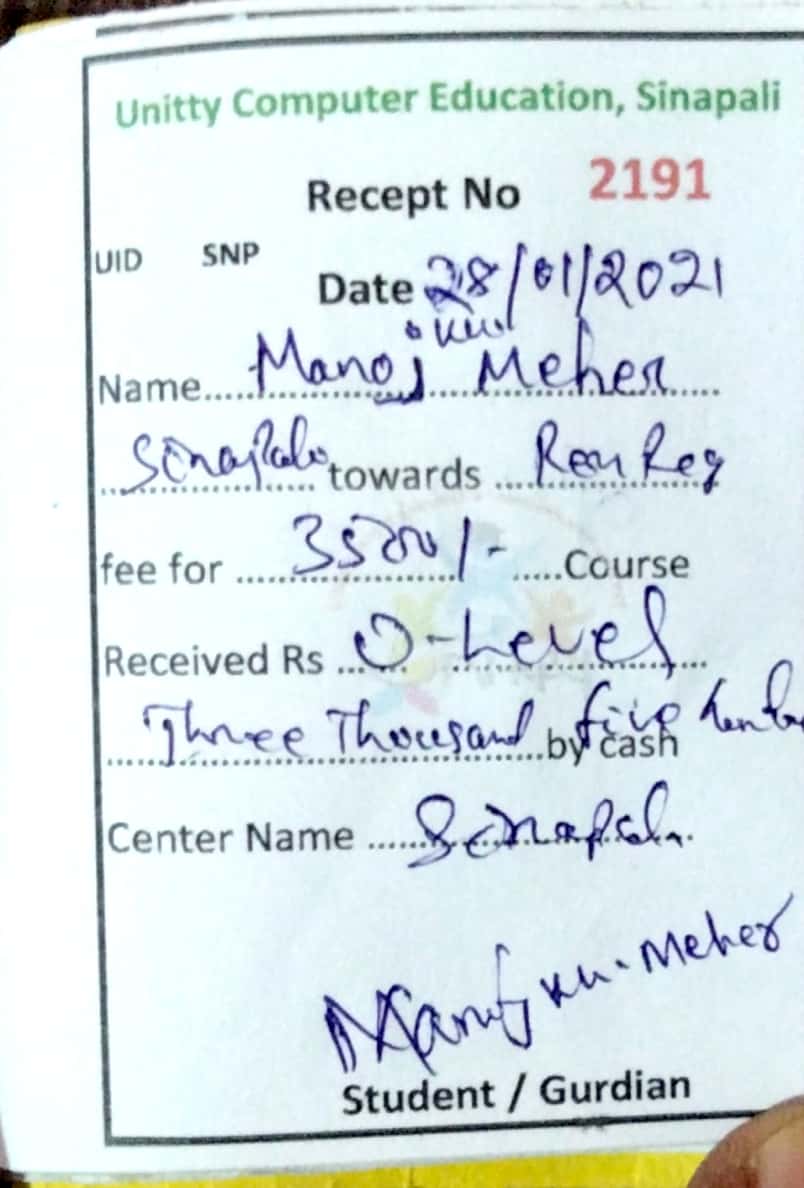 Unitty Computer Education, Sinapali
Recept No 2191
UID SNP
Date 28/01/2021
Name.....Manoj Ku Meher.....
.....Sinapali towards .....Reg
fee for .....3500/-.....Course
Received Rs ...O-Level.....
.....Three Thousand five by cash
Center Name ......Sinapali.
Manoj Ku. Meher
Student / Gurdian